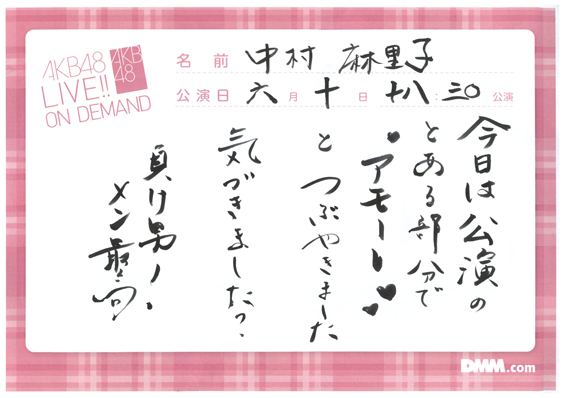 AKB48
LIVE!!
ON DEMAND
AKB
48
名前 中村 麻里子
公演日 六月十日 十八:三〇 公演
今日は公演の
とある部分で
♥アモーレ♥♥
とつぶやきました
気づきましたか?
負け男ノ、
メン最高
DMM.com